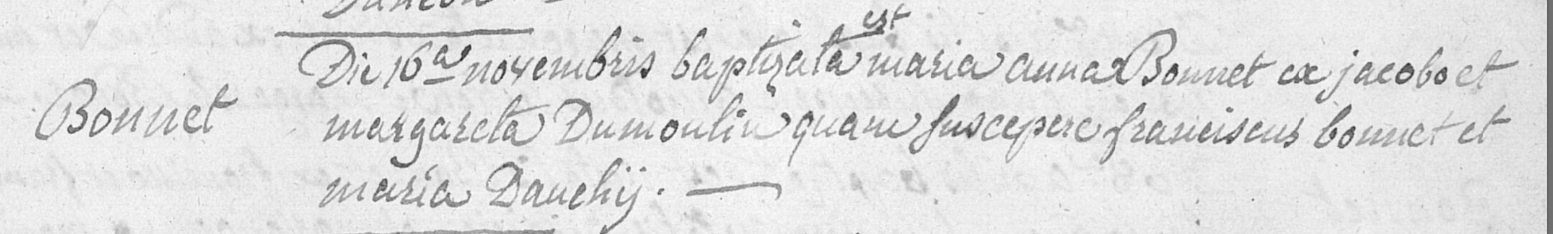 est
Bonnet
Die 16a novembris baptizata maria anna Bonnet ex jacobo et
margareta Dumoulin quam suscepere franciscus bonnet et
maria Dauchij.